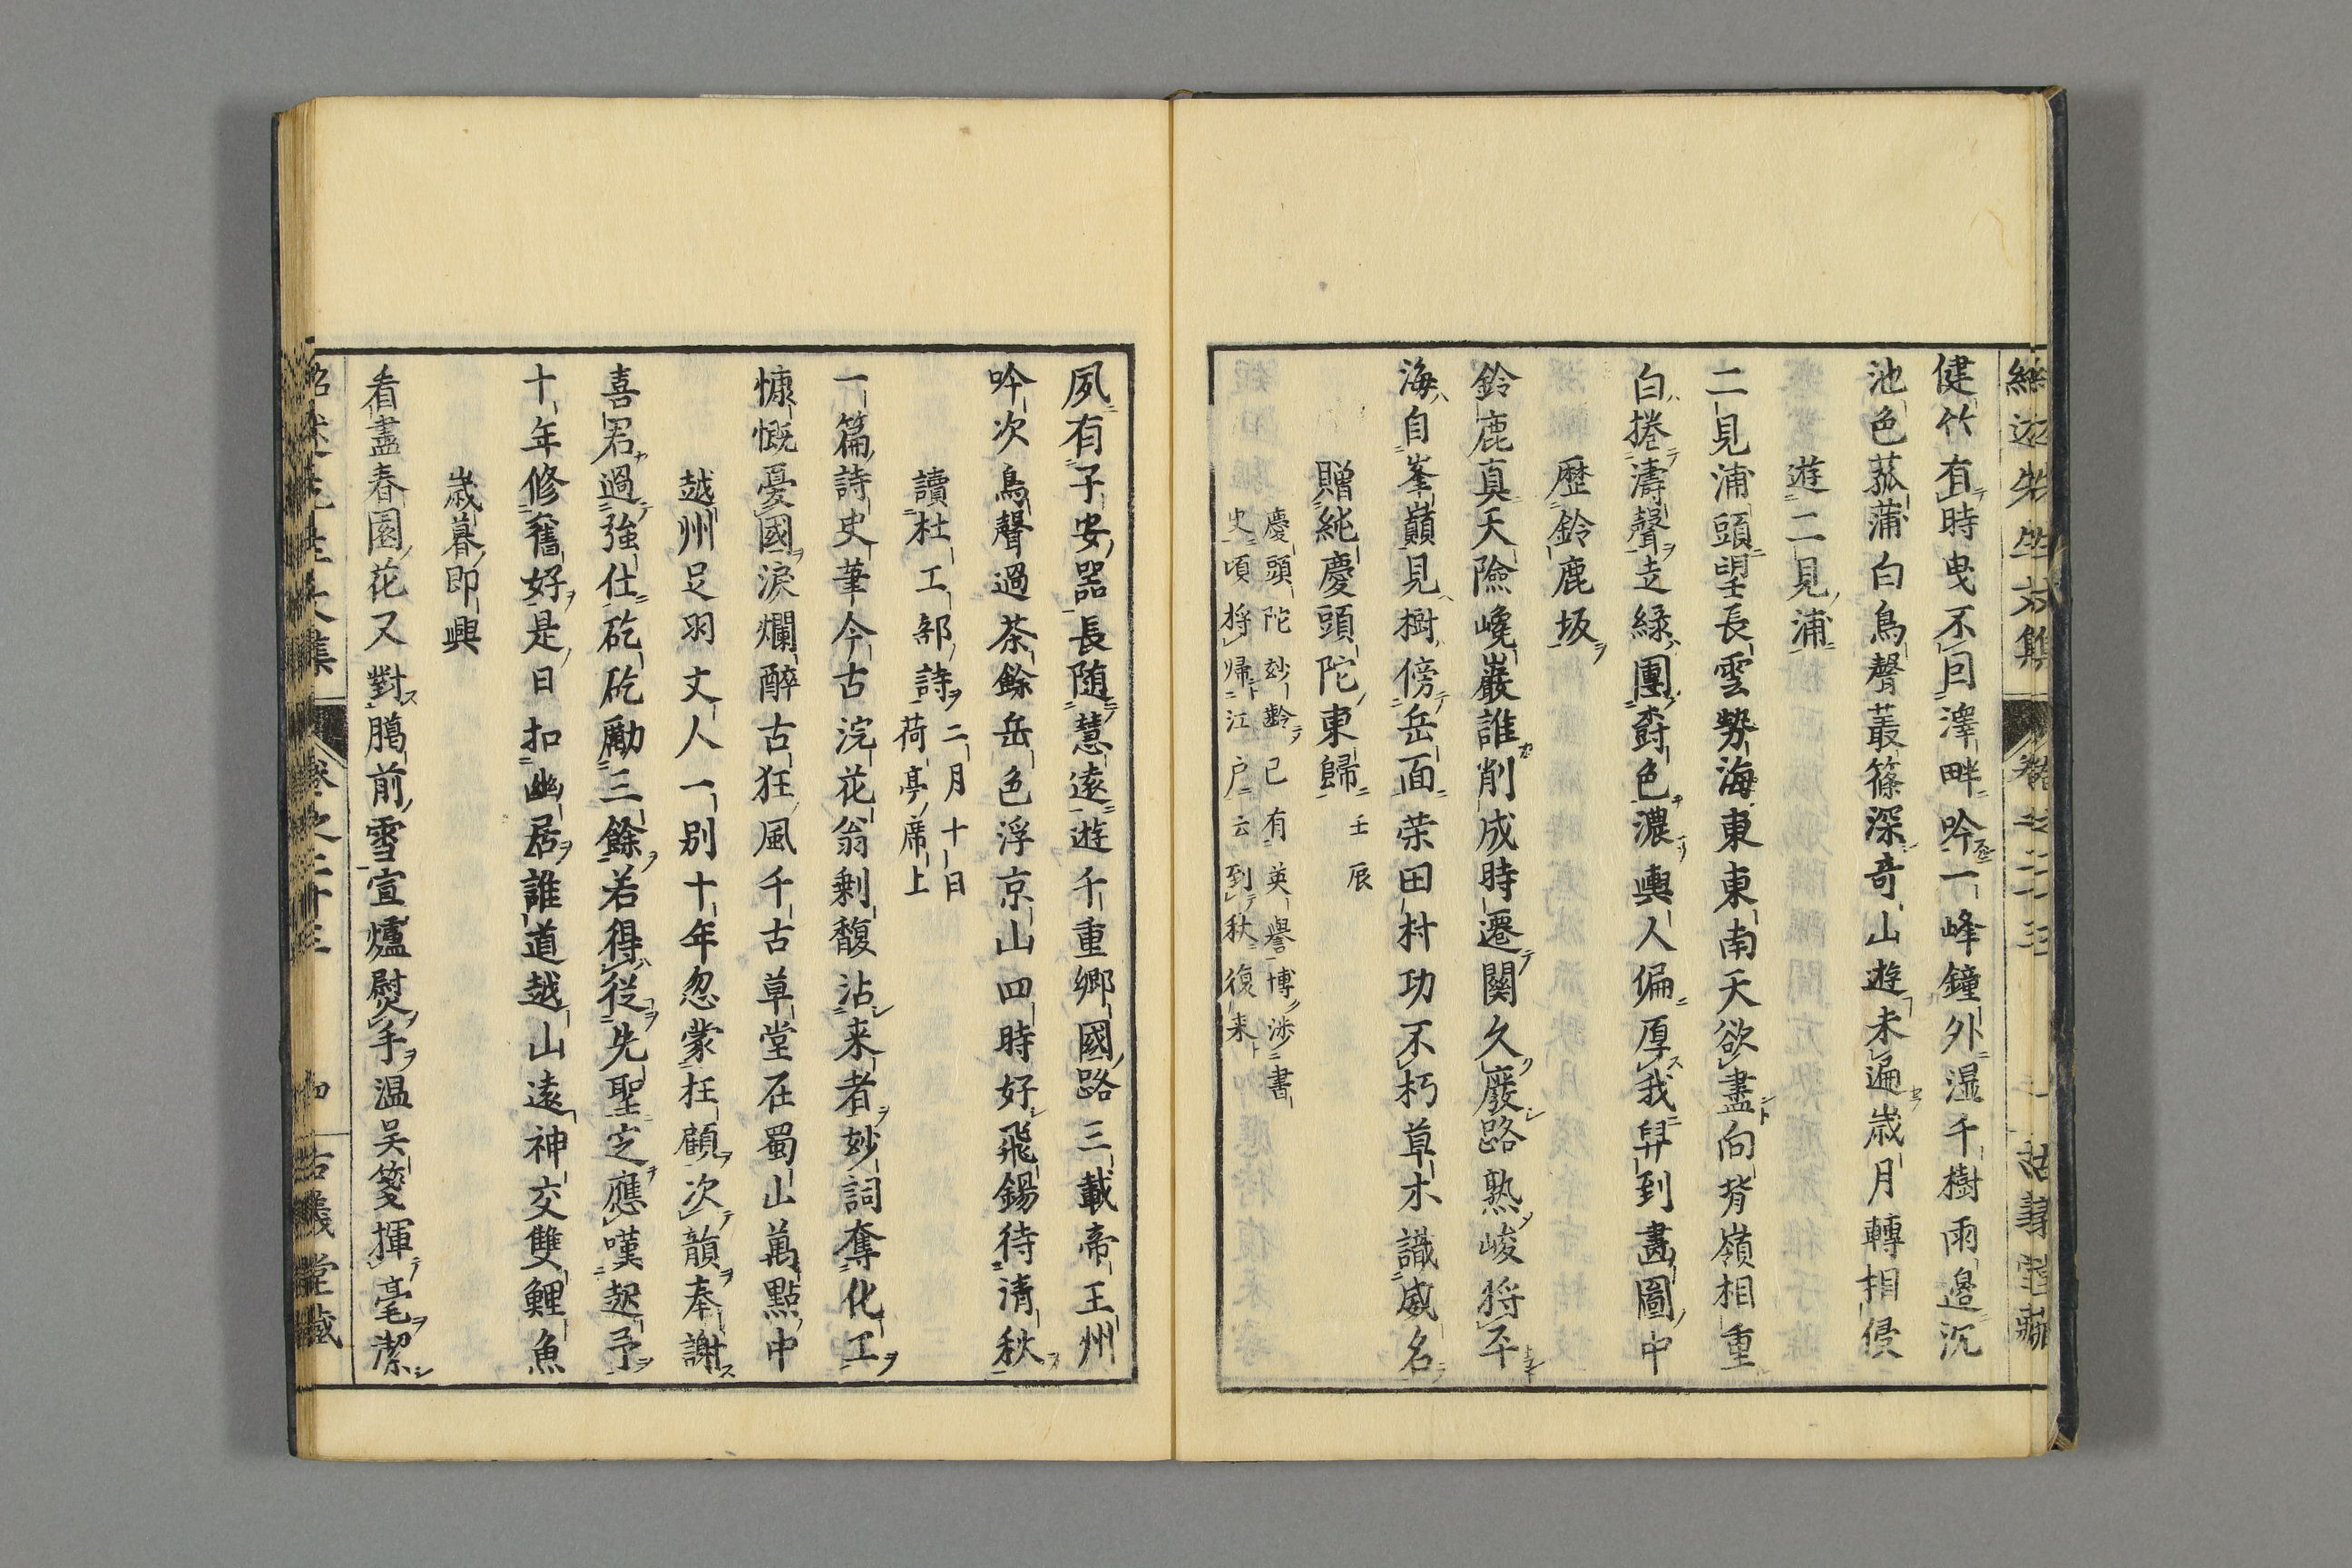 健竹有時曳不回澤畔吟一峰鐘外湿千樹雨邉沉
池色菰蒲白鳥聲叢篠深奇山遊未遍歳月轉相侵
遊二見浦
二見浦頭望長雲勢海東東南天欲盡向背嶺相重
白捲濤聲走緑團樹色濃輿人偏厚我舁到畵圖中
歴鈴鹿坂
鈴鹿真天險巉巖誰削成時遷關久廢路熟峻将平
海自峯巓見樹傍岳面榮田村功不朽草木識威名
贈純慶頭陀東歸 壬辰
慶頭陀玅齡已有英譽博渉書
史頃将歸江戸云到秋復来
夙有子安噐長随慧遠遊千重郷國路三載帝王州
吟次鳥聲過茶餘岳色浮京山四時好飛錫待清秋
讀杜工部詩 二月十日
荷亭席上
一篇詩史筆今古浣花翁剰馥沾来者玅詞奪化工
慷慨憂國涙爛醉古狂風千古草堂在蜀山萬點中
越州足羽文人一別十年忽蒙枉顧次韻奉謝
喜君過強仕矻矻勵三餘若得從先聖定應嘆起予
十年修舊好是日扣幽居誰道越山遠神交雙鯉魚
歳暮即興
看盡春園花又對臈前雪宣爐熨手温吴箋揮毫潔
卷之二十三
四
古義堂藏